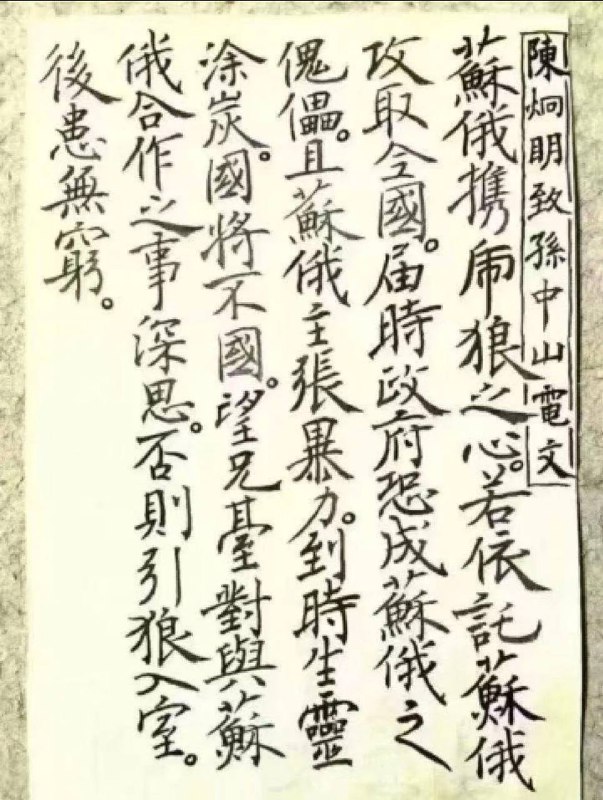 陳炯明致孫中山電文
蘇俄攜虎狼之心。若依託蘇俄
攻取全國。届時政府恐成蘇俄之
傀儡。且蘇俄主張暴力。到時生靈
涂炭。國將不國。望兄臺對與蘇
俄合作之事深思。否則引狼入室。
後患無窮。